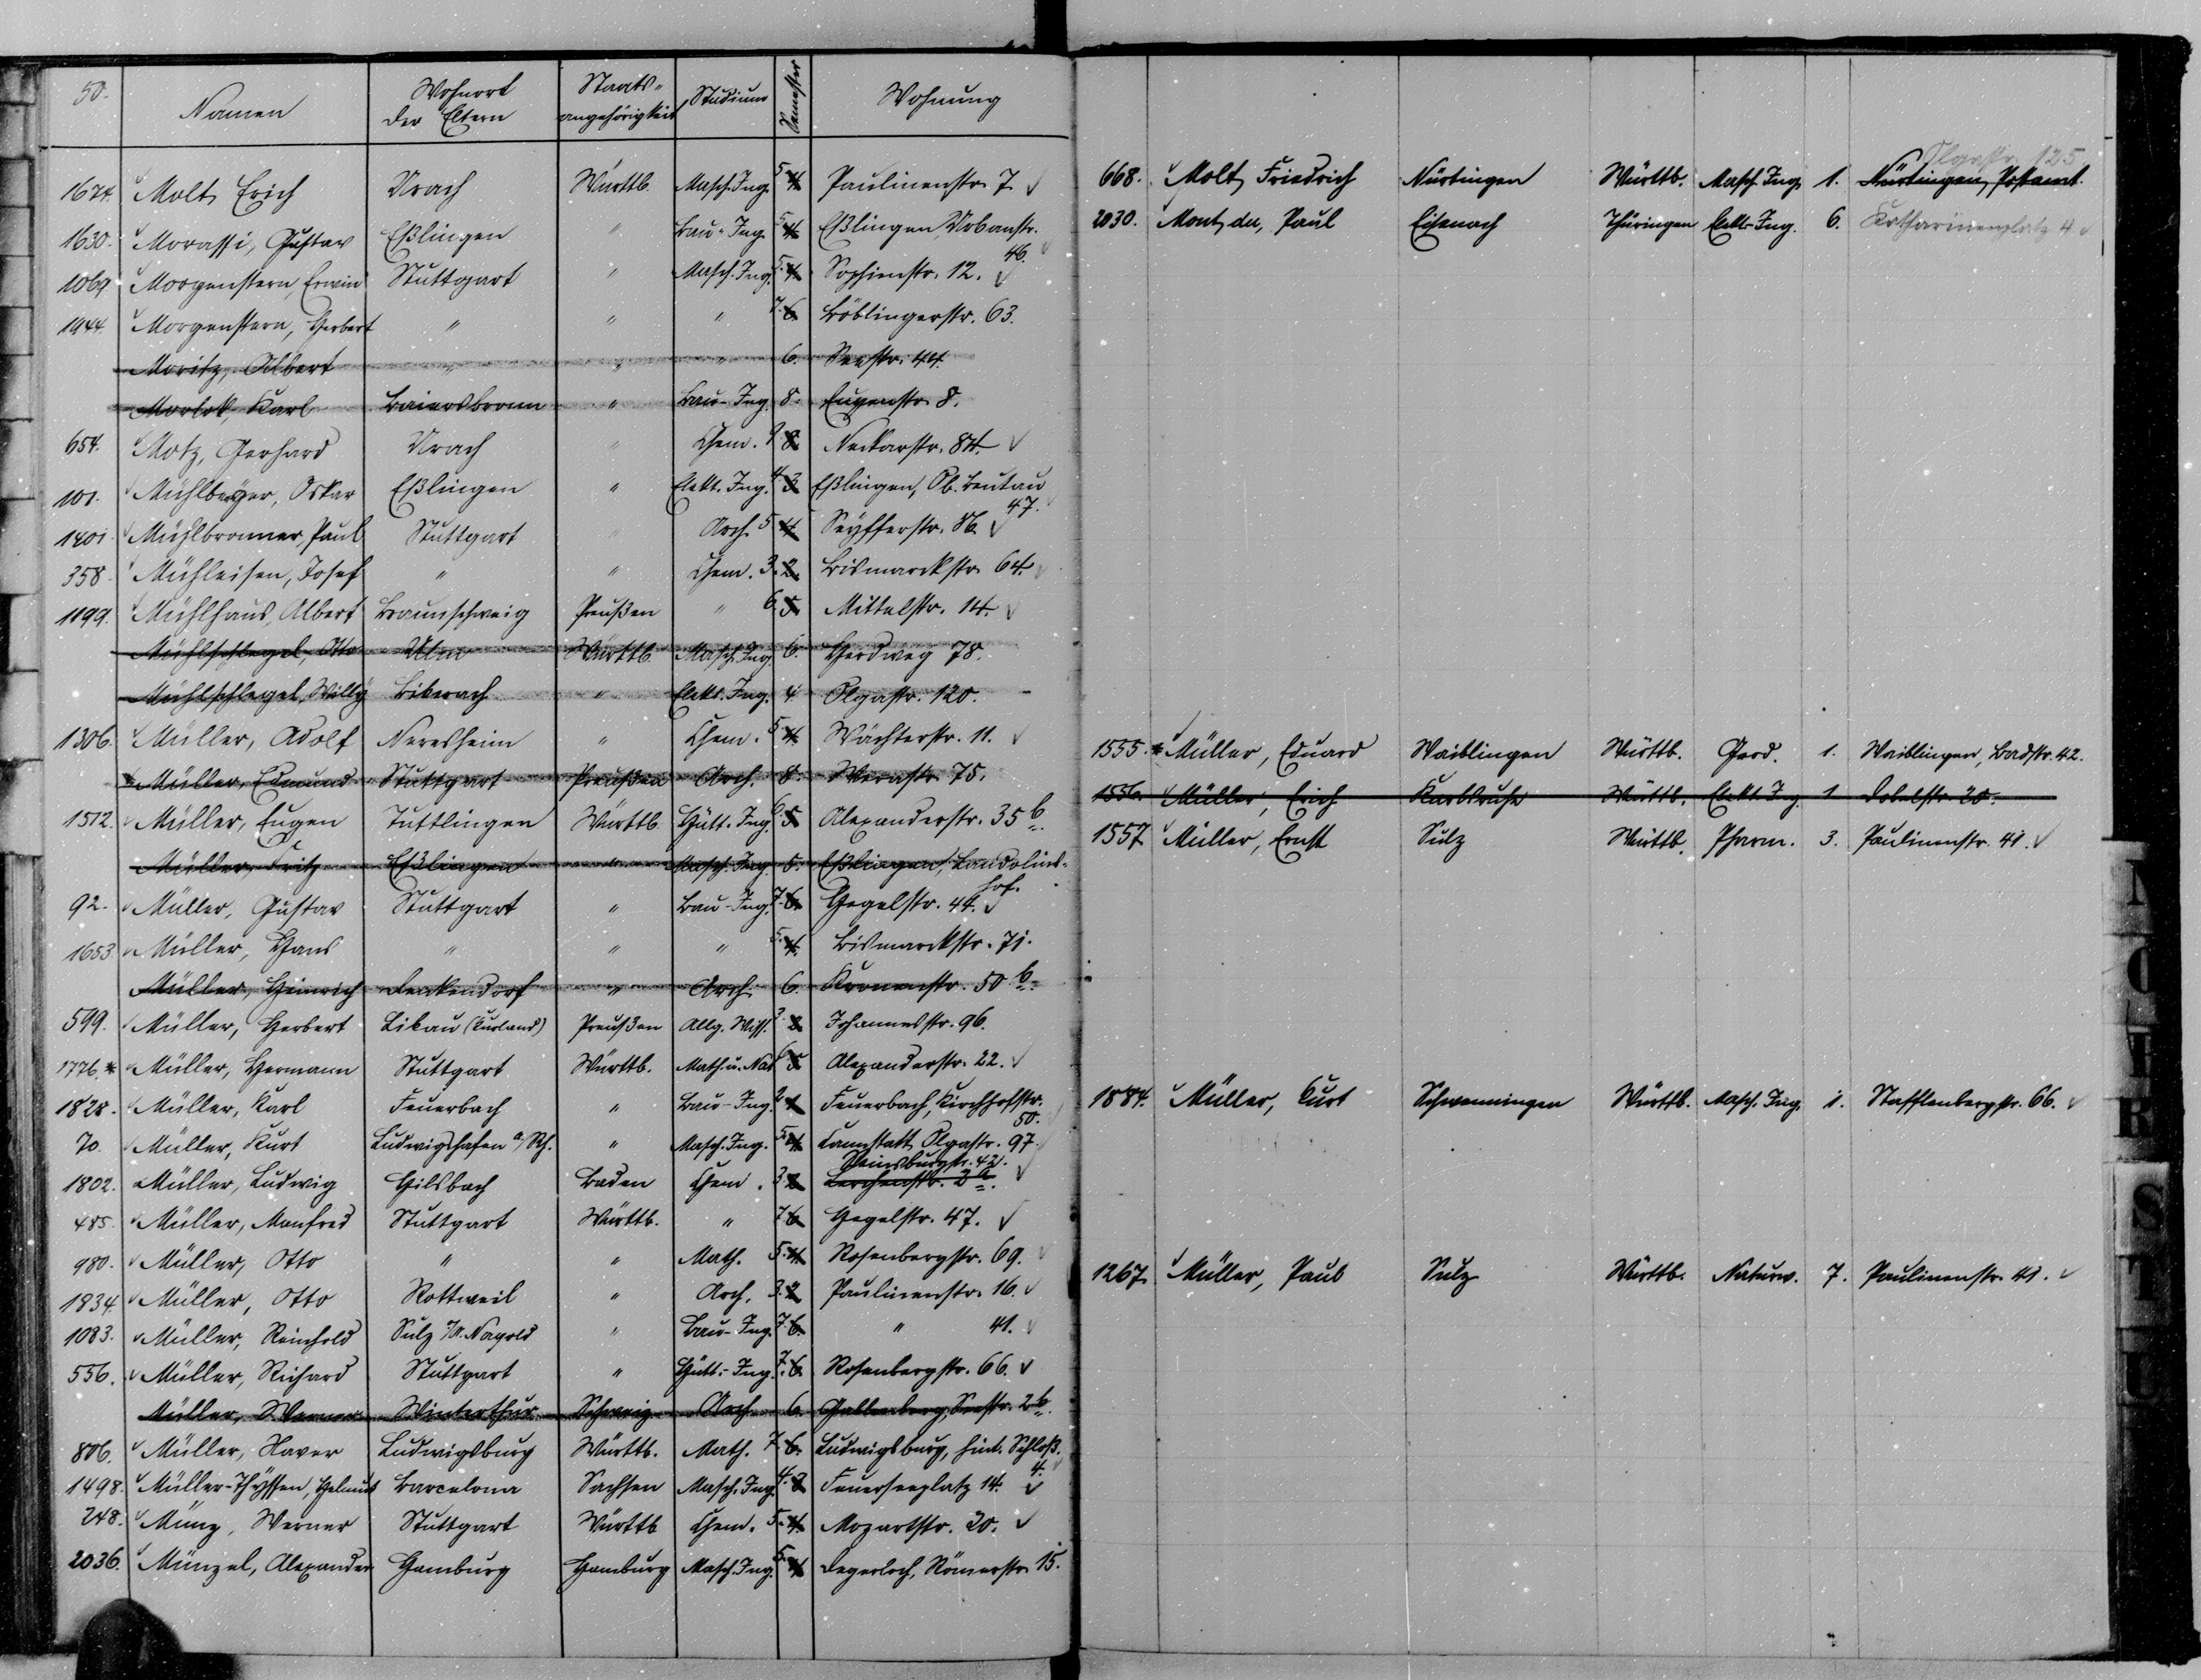 50.
Namen Wohnort der Eltern Staats- angehörigkeit Studium Semester Wohnung
1674. Molt, Erich Urach Württb. Masch. Ing. 5 4 Paulinenstr. 7
1630. Morassi, Gustav Eßlingen " Bau-Ing. 5. 4 Eßlingen, Urbanstr. 46.
1069 Morgenstern, Erwin Stuttgart " Masch. Ing. 5. 4 Sophienstr. 12.
1944. Morgenstern, Herbert " " " 7. 6. Böblingerstr. 63.
Moritz, Albert " " " 6. Seestr. 44.
Morlok, Karl Baiersbronn " Bau-Ing. 8. Eugenstr. 8.
654. Motz, Gerhard Urach " Chem. 9 8 Neckarstr. 84.
101. Mühlberger, Oskar Eßlingen " Elekt. Ing. 4 3 Eßlingen, Ob. Beutau 47.
1401. Mühlbronner, Paul Stuttgart " Arch. 5 4 Seyfferstr. 86.
358. Mühleisen, Josef " " Chem. 3. 2. Bismarckstr. 64.
1199. Mühlhaus, Albert Braunschweig Preußen " 6. 5. Mittelstr. 14.
Mühlschlegel, Otto Ulm Württb. Masch. Ing. 6. Herdweg 78.
Mühlschlegel, Willy Biberach " Elekt. Ing. 4 Olgastr. 120.
1306. Müller, Adolf Neresheim " Chem. 5 4 Wächterstr. 11.
Müller, Edmund Stuttgart Preußen Arch. 8. Werastr. 75.
1512. Müller, Eugen Tuttlingen Württb. Hütt. Ing. 6 5 Alexanderstr. 35 b.
Müller, Fritz Eßlingen " Masch. Ing. 5. Eßlingen, Landolins- hof.
92. Müller, Gustav Stuttgart " Bau-Ing. 7. 6. Hegelstr. 44.
1653. Müller, Hans " " " 5. 4. Bismarckstr. 71.
Müller, Heinrich Denkendorf " Arch. 6. Kronenstr. 50 b.
599. Müller, Herbert Libau (Kurland) Preußen Allg. Wiss. 3 2 Johannesstr. 96.
1776.* Müller, Hermann Stuttgart Württb. Math. u. Nat. 6 5 Alexanderstr. 22.
1828. Müller, Karl Feuerbach " Bau-Ing. 2 1 Feuerbach, Kirchhofstr. 50.
70. Müller, Kurt Ludwigshafen a/Rh. " Masch. Ing. 5. 4 Cannstatt Olgastr. 97.
Reinsburgstr. 42.
1802. Müller, Ludwig Hilsbach Baden Chem. 3 2 Lerchenstr. 3 a.
485. Müller, Manfred Stuttgart Württb. " 7. 6 Hegelstr. 47.
980. Müller, Otto " " Math. 5. 4. Rosenbergstr. 69.
1834. Müller, Otto Rottweil " Arch. 3. 2 Paulinenstr. 16.
1083. Müller, Reinhold Sulz O/A. Nagold " Bau-Ing. 7. 6. " 41.
556. Müller, Richard Stuttgart " Hütt.-Ing. 7. 6 Rosenbergstr. 66.
Müller, Werner Winterthur Schweiz Arch. 6. Seestr. 2 b.
806. Müller, Xaver Ludwigsburg Württb. Math. 7. 6. Ludwigsburg, hint. Schloß. 4.
1498. Müller-Thyssen, Helmut Barcelona Sachsen Masch. Ing. 4. 3 Feuerseeplatz 14.
248. Münz, Werner Stuttgart Württb Chem. 5. 4. Mozartstr. 30.
2036. Münzel, Alexander Hamburg Hamburg Masch. Ing. 5. 4 Degerloch, Römerstr. 15.
Olgastr. 125
668. Molt, Friedrich Nürtingen Württb. Masch. Ing. 1. Nürtingen, Postamt.
2030. Mont, du, Paul Eisenach Thüringen Elekt. Ing. 6. Katharinenplatz 4
1555.* Müller, Eduard Waiblingen Württb. Geod. 1. Waiblingen, Badstr. 42.
1556. Müller, Erich Karlsruhe Württb. Elekt. Ing. 1 Dobelstr. 20.
1557 Müller, Ernst Sulz Württb. Pharm. 3. Paulinenstr. 41.
1884. Müller, Curt Schwenningen Württb. Masch. Ing. 1. Stafflenbergstr. 66.
1267. Müller, Paul Sulz Württb. Naturw. 7. Paulinenstr. 41.
R
S
T
U